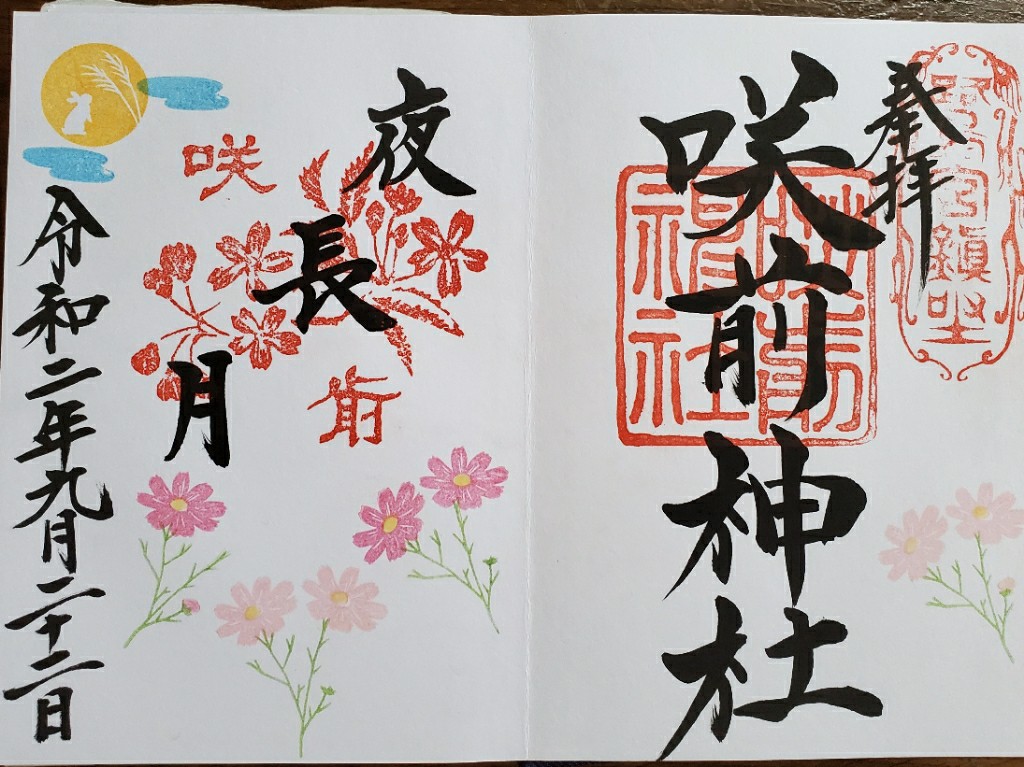 奉拝
咲前神社
咲前神社
夜長月
咲
前
令和二年九月二十二日